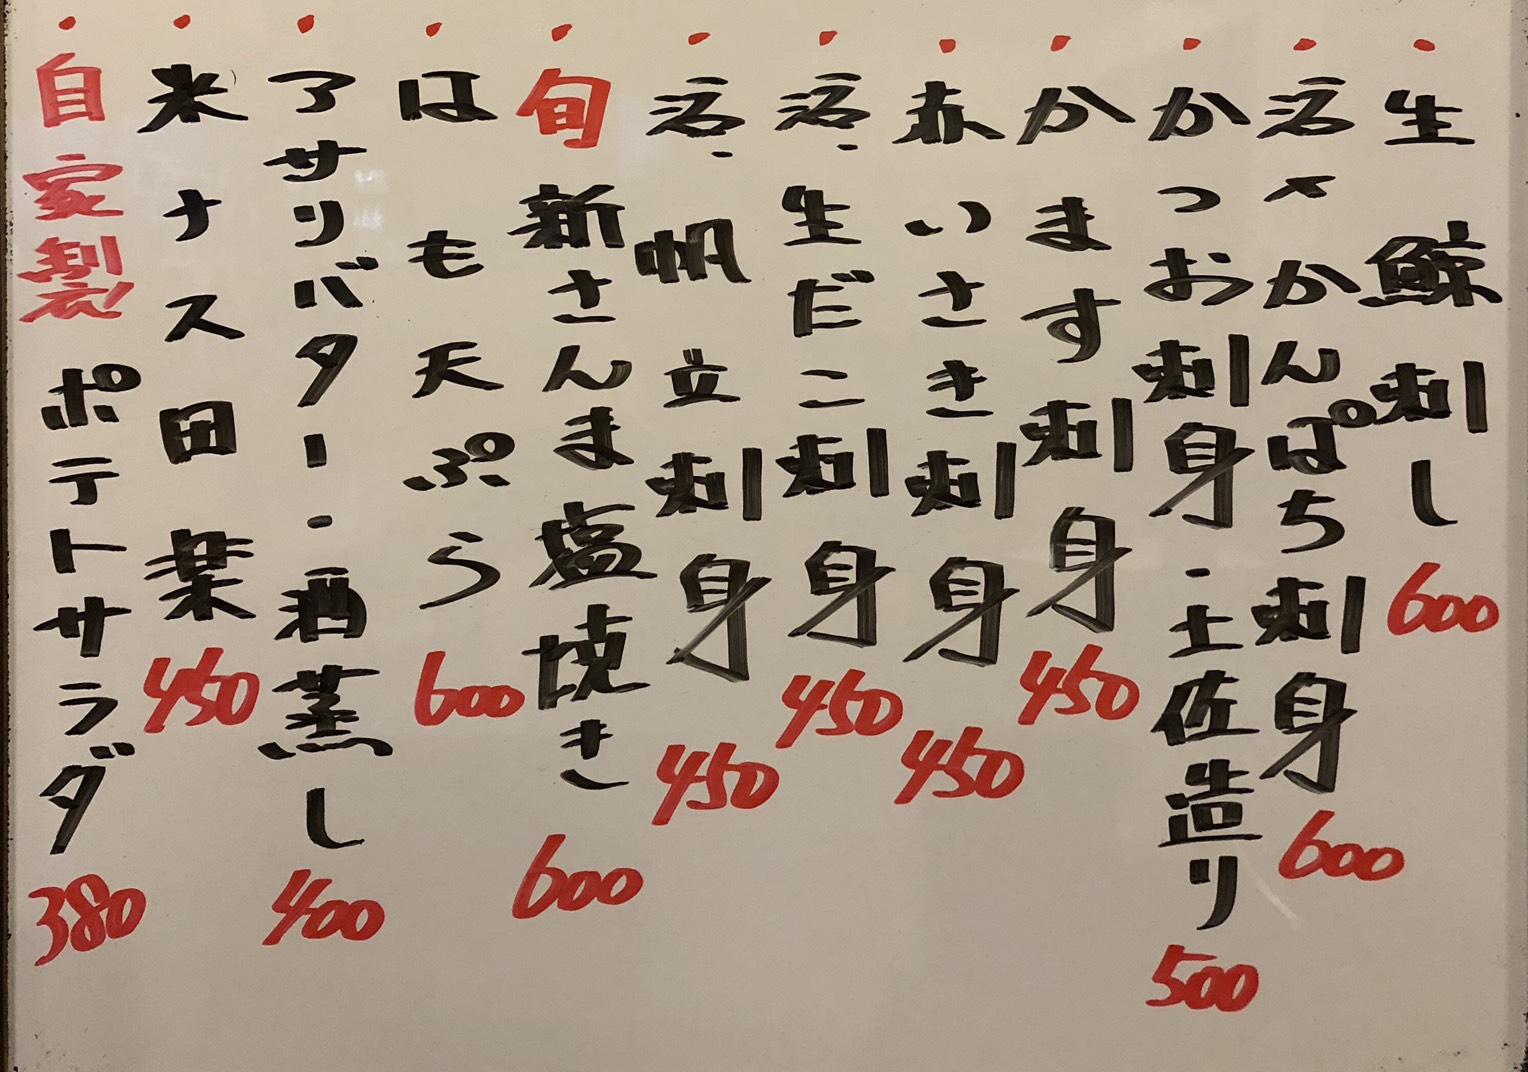 ・生鯨刺し 600
・活〆かんぱち刺身 600
・かつお刺身・土佐造り 500
・かます刺身 450
・赤いさき刺身 450
・活・生だこ刺身 450
・活・帆立刺身 450
・旬新さんま塩焼き 600
・はも天ぷら 600
・アサリバター・酒蒸し 400
・米ナス田楽 450
・自家製ポテトサラダ 380